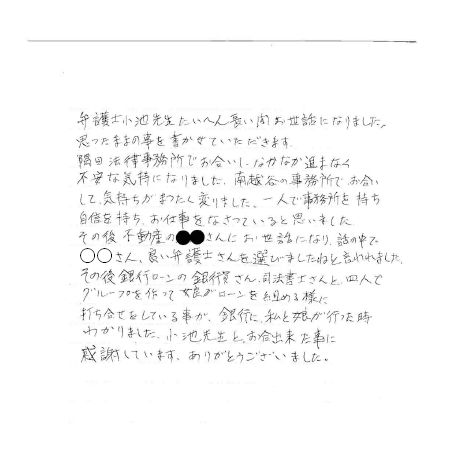 弁護士小池先生たいへん長い間お世話になりました。
思ったままの事を書かせていただきます。
隅田法律事務所でお会いし、なかなか進まなく
不安な気持になりました。南越谷の事務所でお会い
して、気持ちがまったく変りました。一人で事務所を持ち
自信を持ち、お仕事をなさっていると思いました
その後不動産の●●さんにお世話になり、話の中で
○○さん、良い弁護士さんを選びましたねと言われました。
その後銀行ローンの銀行員さん、司法書士さんと、四人で
グループを作って娘がローンを組める様に
打ち合せをしている事が、銀行に、私と娘が行った時
わかりました。小池先生と、お会出来た事に
感謝しています、ありがとうございました。